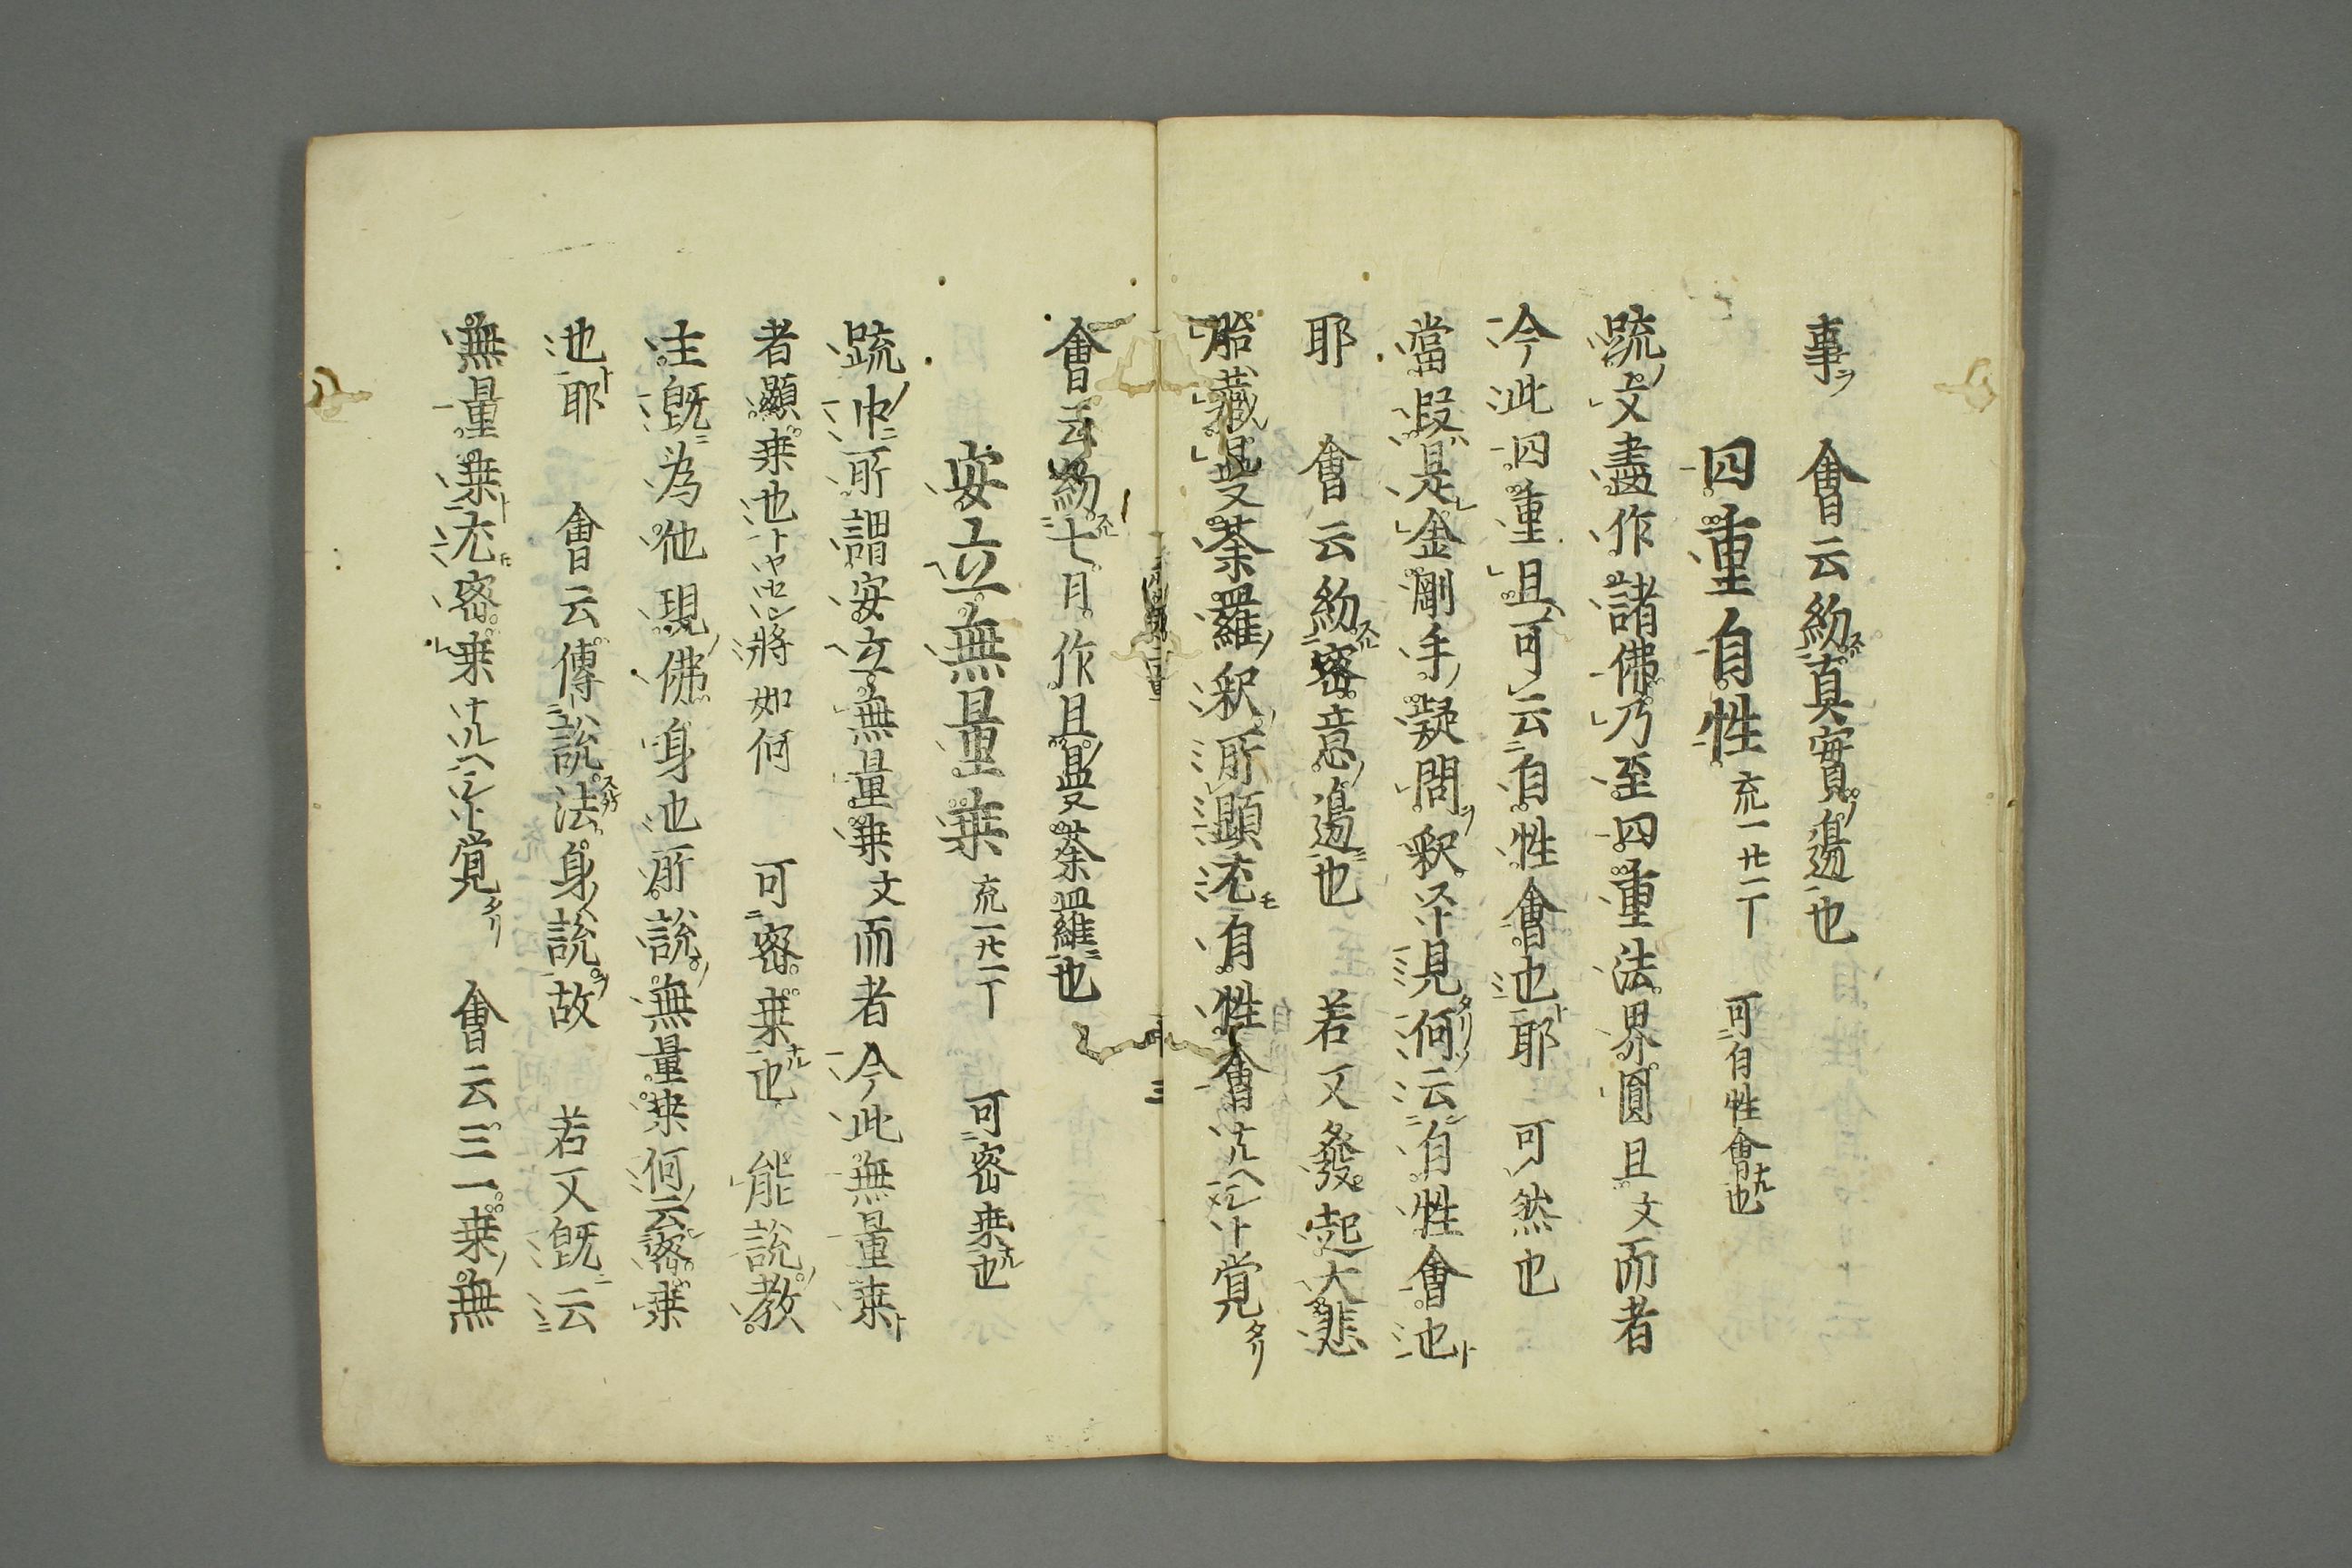 事ヲ 會云約眞實ノ邊也
四重自性 疏一廿二丁 可自性會ナル也
疏ノ文盡作諸佛乃至四重法界圓且文而者
今此四重且可云自性會也耶ト 可然也
當段ハ是金剛手ノ疑問ヲ釈 見タリ何ソ云自性會也ト
耶 會云約密意ノ邊也 若又發起大悲
胎藏曼荼羅ノ釈所顯 自性會 覚タリ
會云約七月作且曼荼羅也
安立無量乗 疏一廿一丁 可密乗ナル也
疏ノ中所謂安立無量乗文而者今此無量乗ト
者顯乗也ト 將如何 可密乗ナル也 能說ノ教
主既ニ為他現ノ佛身也所說ノ無量乗何云密乗
也ト耶 會云傳說法身ノ說ヲ故 若又既ニ云
無量乗ト 密乗 覚タリ 會云三一乗ノ無